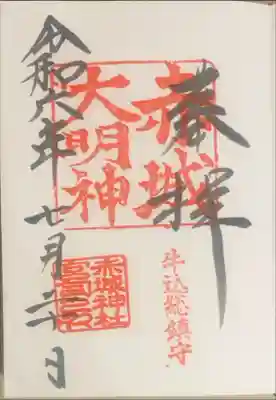 奉拝
赤城
大明神
牛込総鎮守
赤城神社
令和六年七月 日